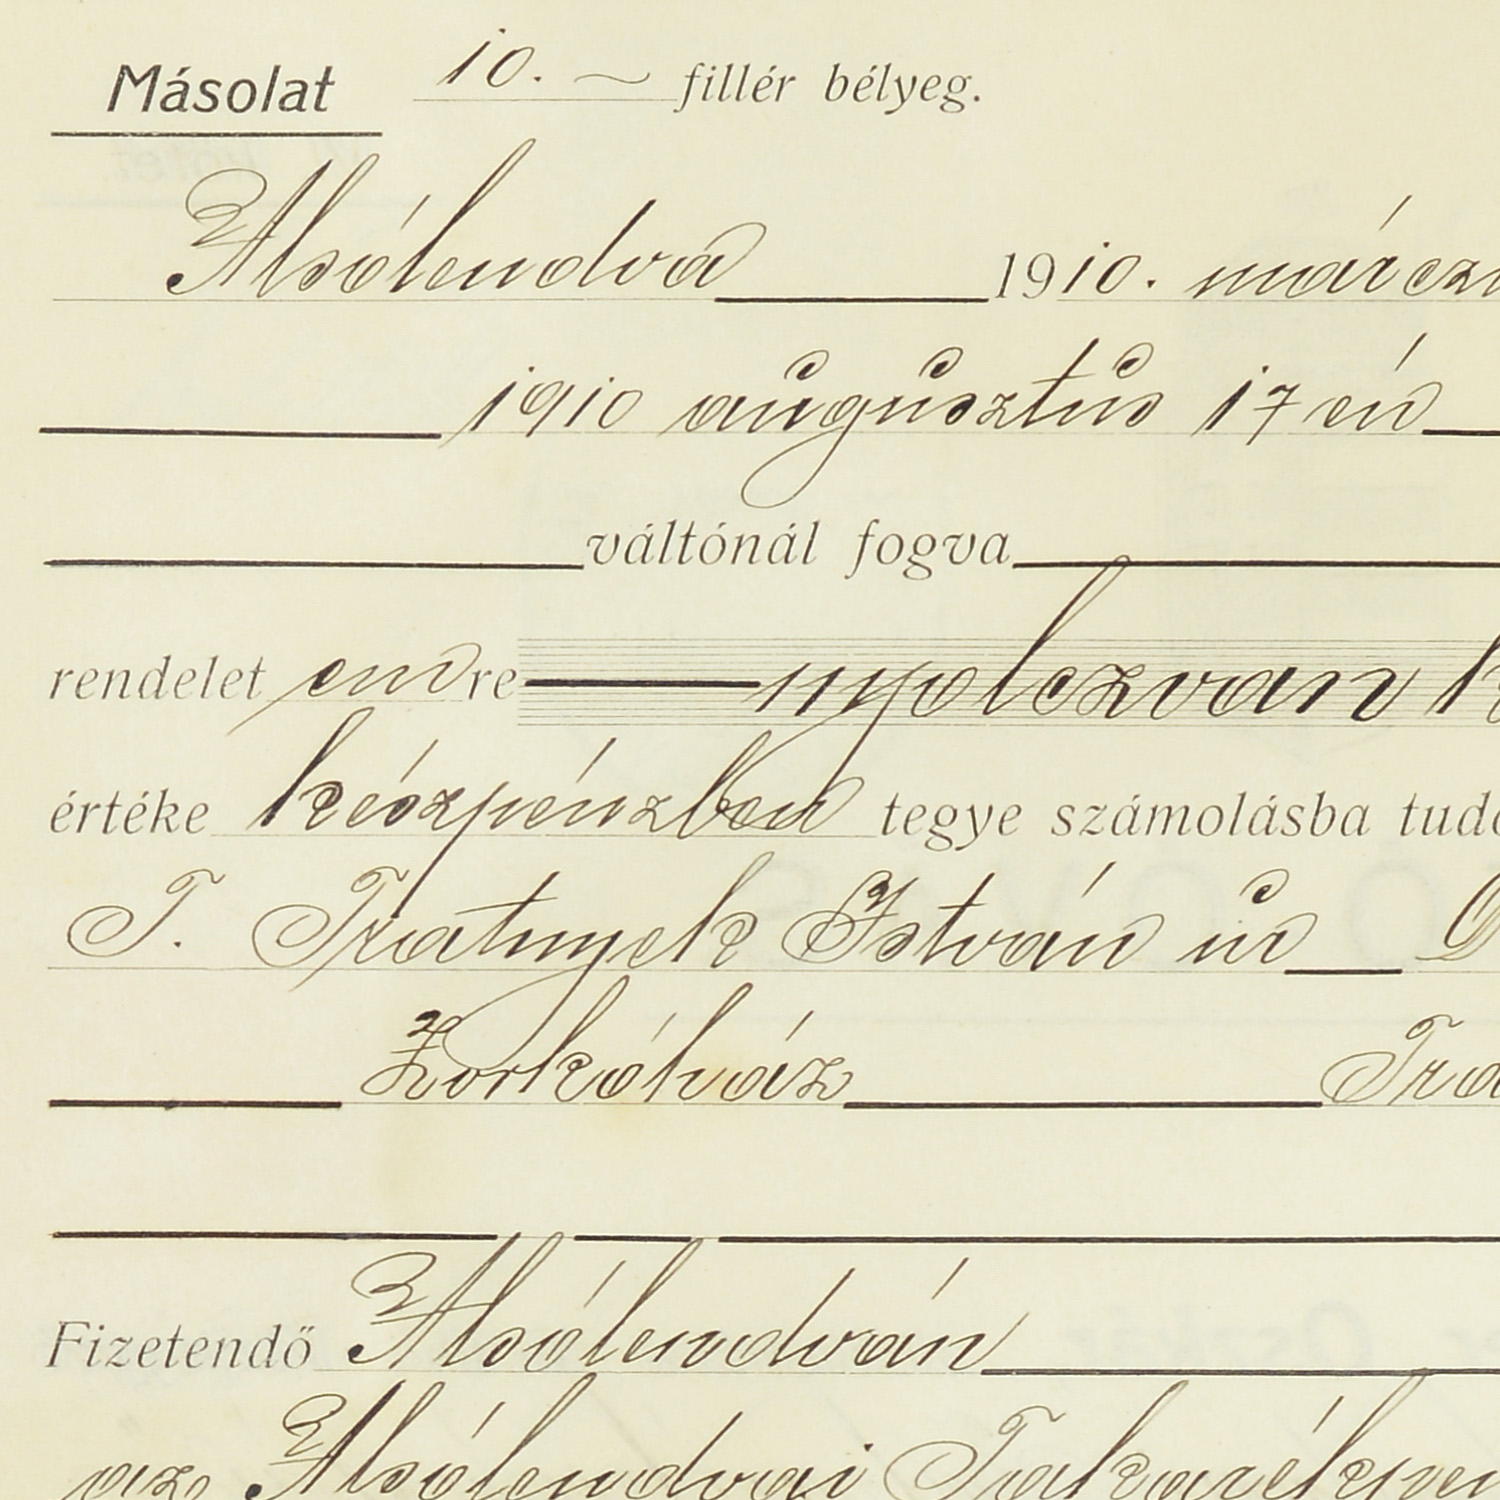 Másolat 10. fillér bélyeg.
Alsólendva 1910. márczi
1910 augusztus 17 én
váltónál fogva
rendelet em re nyolczvan k
értéke készpénzben tegye számolásba tudó
T. Tratnyek István úr
Zorkóház Tra
Fizetendő Alsólendván
az Alsólendvai Takarékpén